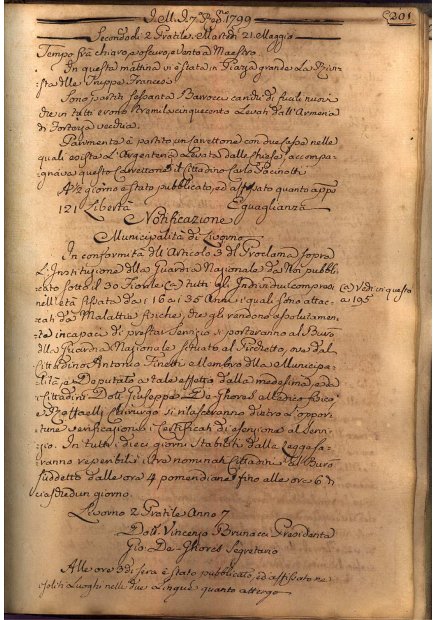 1799
201
Secondo di 2 Pratile Martedì 21 Maggio
Tempo fra chiaro, e oscuro, e vento a Maestro
In questa mattina vi è stata in Piazza grande la Rivi-
sta delle Truppe Francesi
Sono partiti sessanta Barrocci di fucili nuovi
che in tutti erano tremila cinquecento Levati dall'Armeria
di Fortezza vecchia.
Parimente è partito un Carrettone con due Casse nelle
quali esista L'Argenteria Levata dalle Chiese, accompa-
gnava questo Carrettone il Cittadino Carlo Pacinotti
A ½ giorno è stato pubblicato, ed affissato quanto appo
121 Libertà Eguaglianza
Notificazione
Municipalità di Livorno
In conformità dell Articolo 3 di Proclama sopra
L'Instituzione della Guardia Nazionale da Noi pubbli-
cato sotto il 30 Fiorile tutti gli Individui compresi
nell'età fissata da i 16 a i 35 Anni i quali sono attac-
Vedi in questo
a 195
cati da Malattie fisiche, che gli rendono assolutamen-
te incapaci di prestar servizio si porteranno al Burò
della Guardia Nazionale situato al Picchetto, ove dal
Cittadino Antonio Finetti e Membro della Municipa-
lità, e Deputato a tale effetto dalla medesima, e da
Cittadini Dott. Giuseppe De Ghores Medico fisico,
e Raffaelli Chirurgo si rilasceranno dietro l'oppor-
tune verificazioni i Certificati di esenzione al servi-
zio. In tutti i dieci giorni stabiliti dalla Legge sa-
ranno reperibili i tre nominati Cittadini al Burò
suddetto dalle ore 4 pomeridiane fino alle ore 6 di
ciaschedun giorno.
Livorno 2 Pratile Anno 7
Dott. Vincenzo Brunacci Presidente
Gio. De-Ghores Segretario
Alle ore 3 di sera è stato pubblicato, ed affissato ne
soliti Luoghi nelle due Lingue quanto attergo